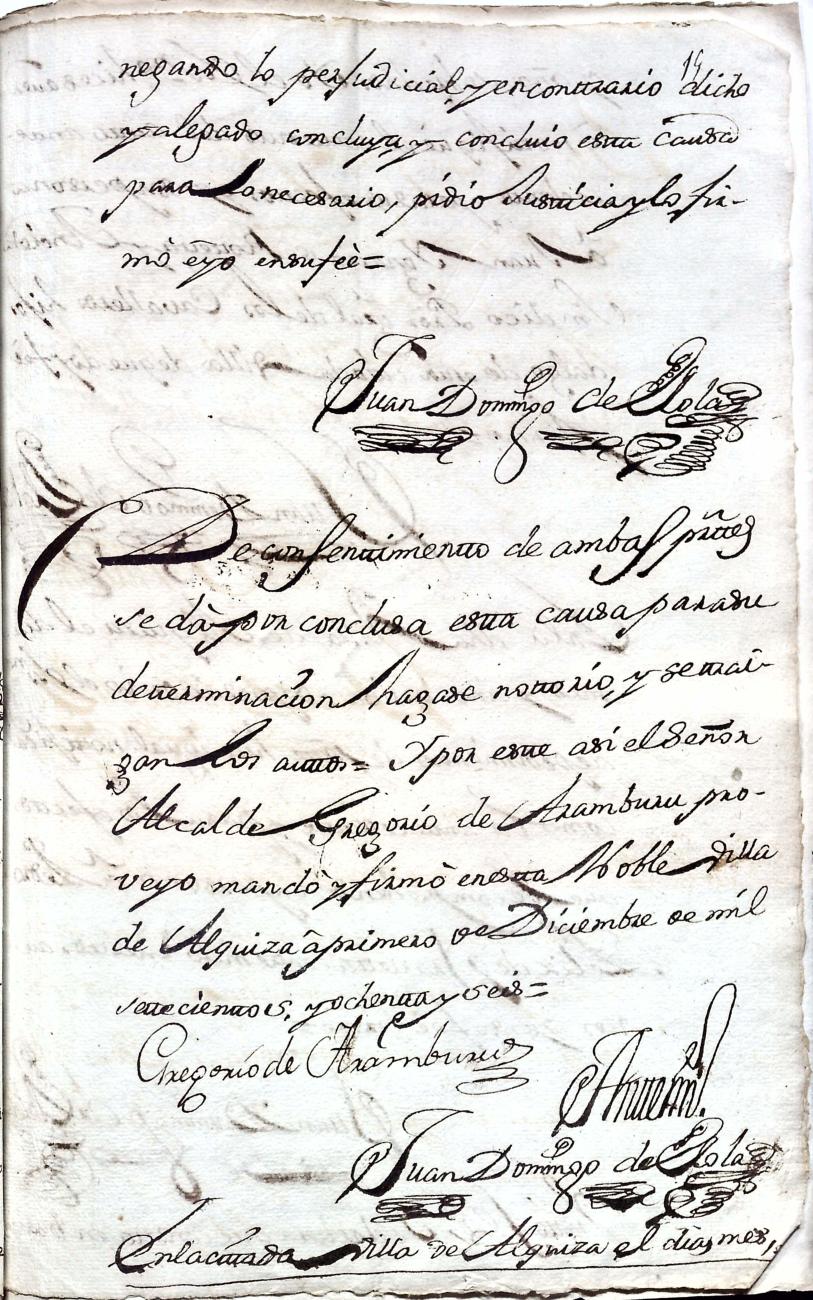 14
negando lo perJudicial, y encontrario dicho
y alegado concluya, y concluio esta causa
para lo necesario, pidió Justicia y lo fir-
mò eýo ensu feè=
Juan Domingo de Yrola
De consentimiento de ambas partes
se dà por conclusa esta causa para su
determinacion hagase nottorio, y se trai-
gan los autos= Y por este asi el Señor
Alcalde Gregorio de Aramburu pro-
veyo mandò y firmò enesta Noble Villa
de Alquiza à primero de Diciembre de mil
settecientos, y ochenta y seis=
Gregorio de Aramburu
Antemi
Juan Domingo de Yrola
En la citada Villa de Alquiza el dia, mes,